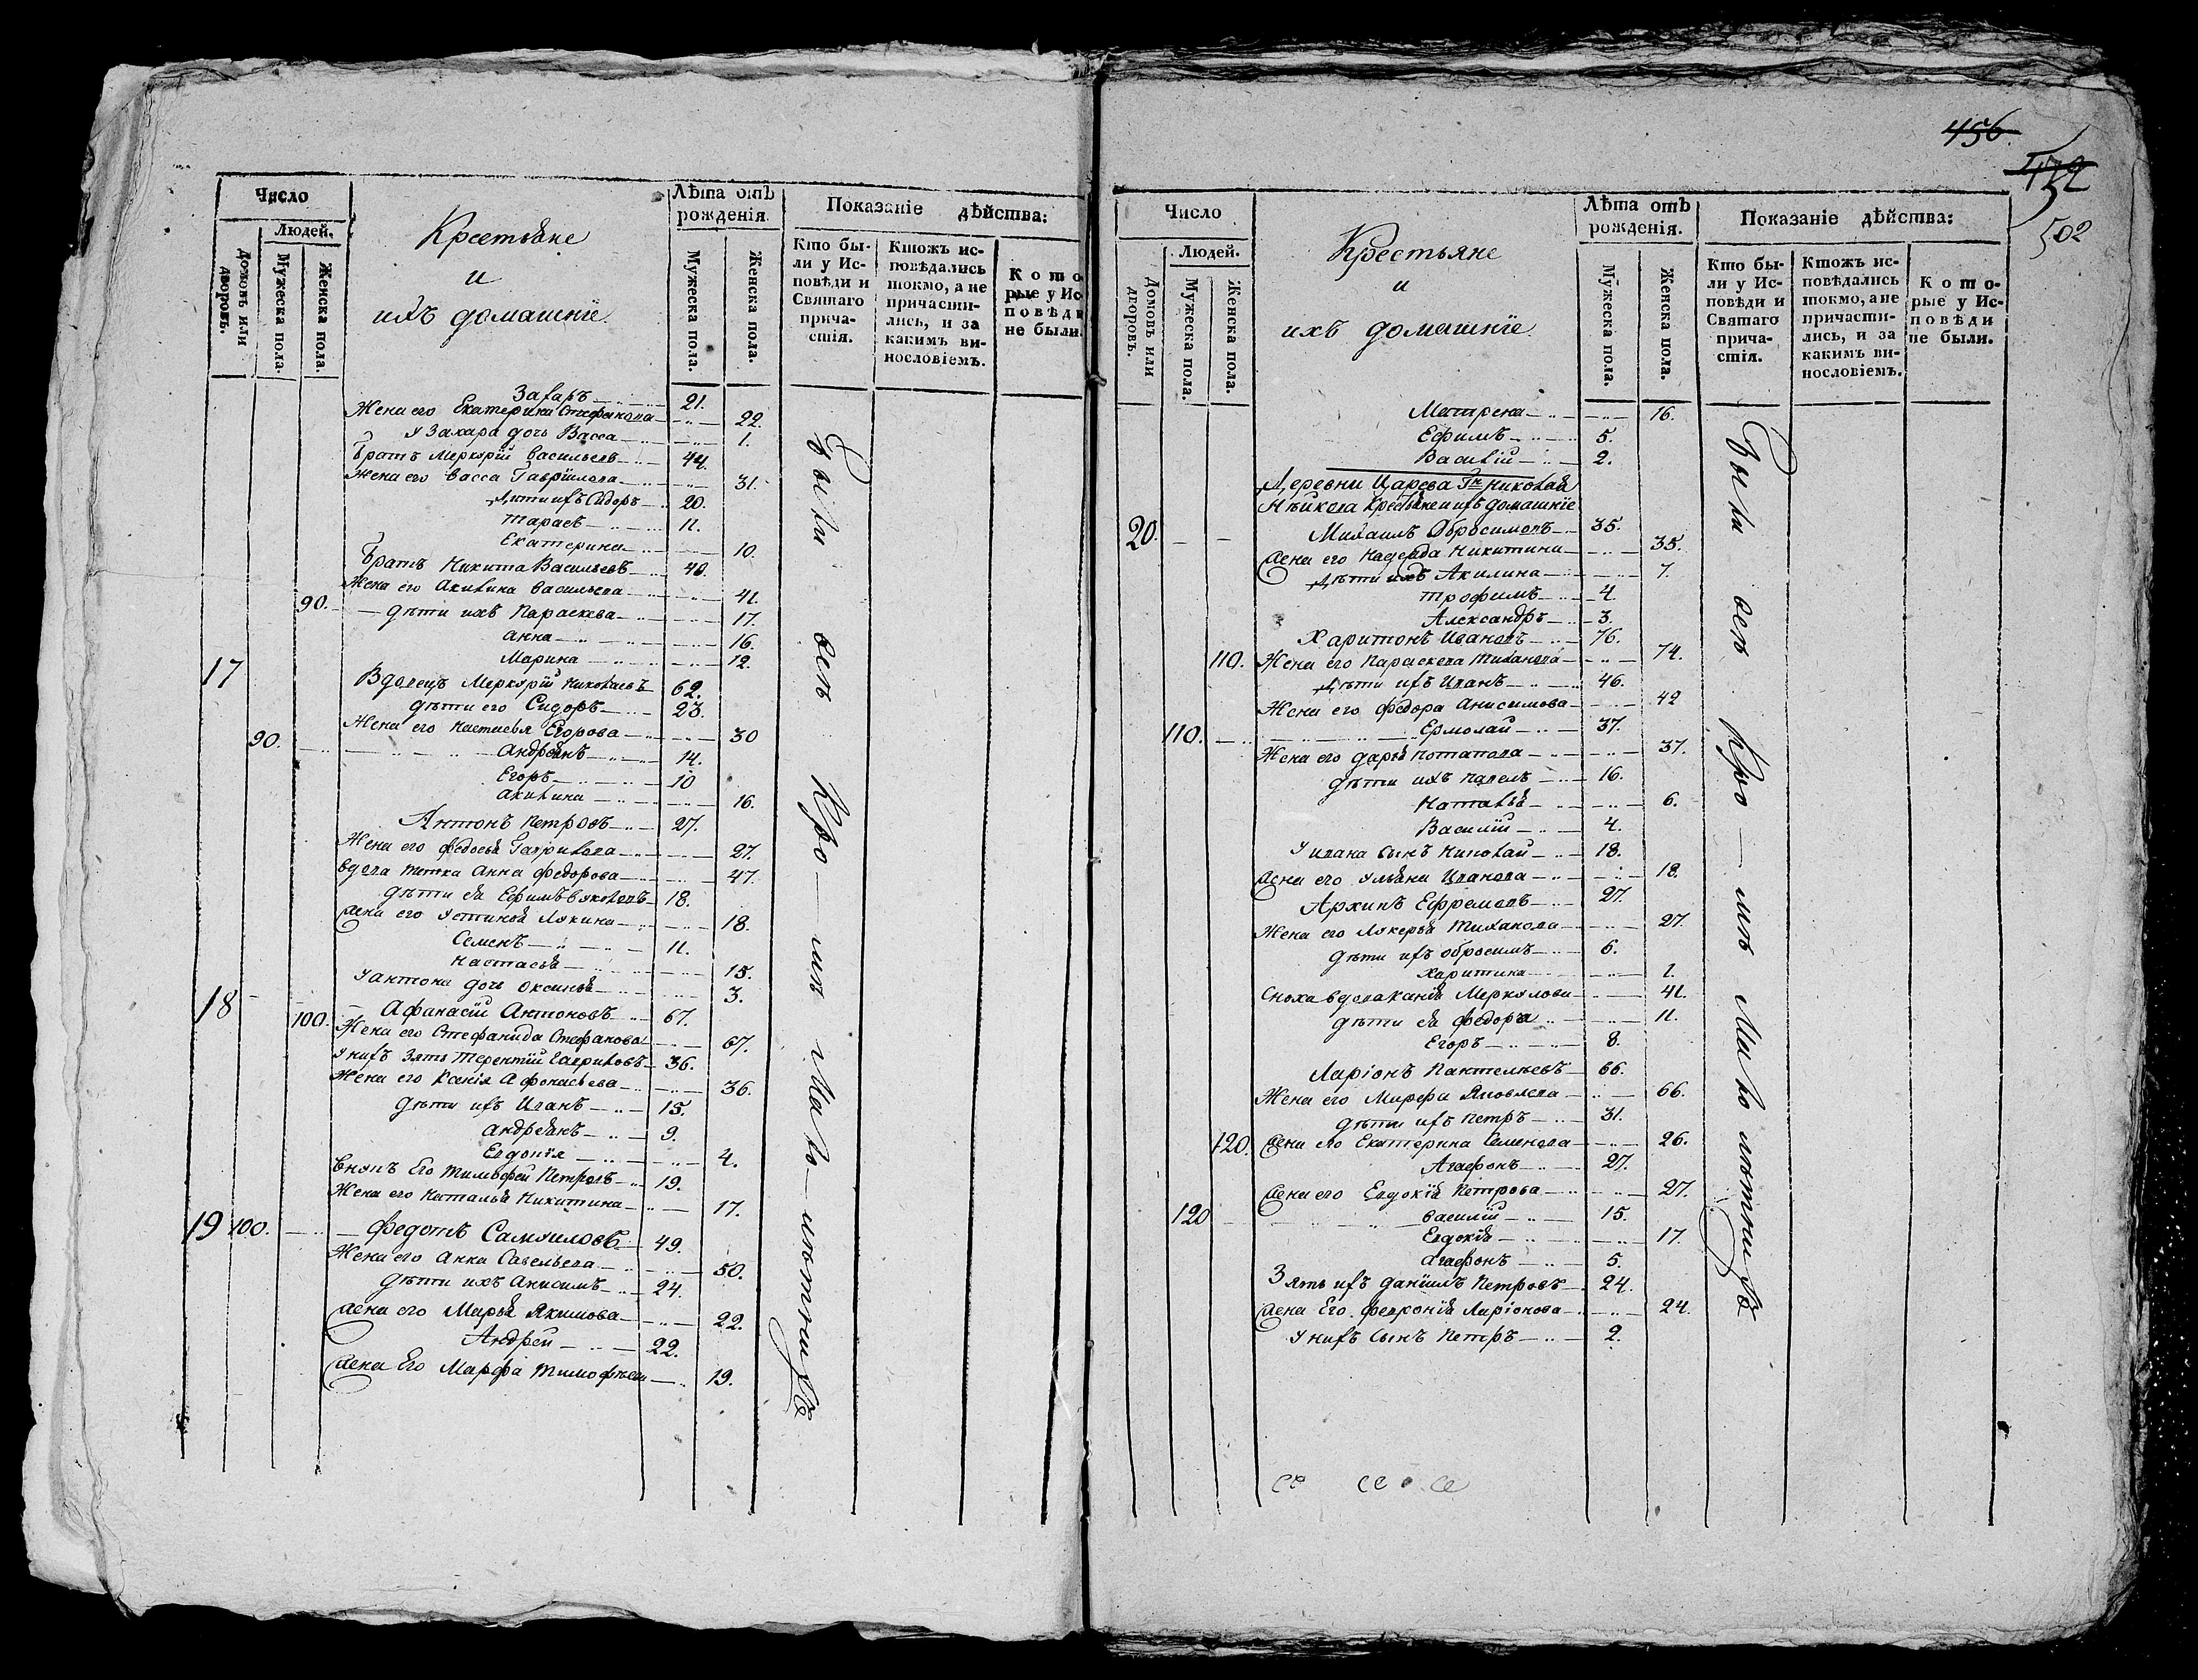 Число
Людей.
Домовъ или дворовъ.
Мужеска пола.
Женска пола.
Крестьяне
и
ихъ домашнїе
Лѣта отъ рожденія.
Мужеска пола.
Женска пола.
Показаніе дѣйства:
Кто были у Исповѣди и Святаго причастія.
Ктожъ исповѣдались токмо, а не причастились, и за какимъ винословіемъ.
Которые у Исповѣди не были.
Захаръ 21.
Жена его Екатерина Стефанова 22.
У Захара дочь Васса 1.
Братъ Меркурїй Васильевъ 44.
Жена его Васса Гаврїилова 31.
Дѣти ихъ Сидоръ 20.
Тарасъ 11.
Екатерина 10.
Братъ Никита Васильевъ 40.
Жена его Акилина Васильева 41.
90. дѣти ихъ Параскева 17.
Анна 16.
Марина 12.
17 Вдовецъ Меркурїй Николаевъ 62.
дѣти его Сидоръ 23.
Жена его Настасья Егорова 30
90. Андреянъ 14.
Егоръ 10
Акилина 16.
Антонъ Петровъ 27.
Жена его Федосья Гаврилова 27.
Вдова тетка Анна Федорова 47.
дѣти ея Ефимъ 18.
Жена его Устинья Лукина 18.
Семенъ 11.
Настасья 15.
У Антона дочь Оксинья 3.
18 100. Афанасїй Антоновъ 67.
Жена его Стефанида Стефанова 67.
У нихъ зять Терентїй Гавриловъ 36.
Жена его Ксенїя Афонасьева 36.
Дѣти ихъ Иванъ 15.
Андреянъ 9.
Евдокїя 4.
Внукъ Его Тимофей Петровъ 19.
Жена его Наталья Никитина 17.
19 100. Федотъ Самуиловъ 49.
Жена его Анна Савельева 50.
Дѣти ихъ Анисимъ 24.
Жена его Марья Якимова 22.
Андрей 22.
Жена Его Марфа Тимофѣева 19.
Были всѣ Кро-мѣ Мало-лѣтнихъ
456
502
Число
Людей.
Домовъ или дворовъ.
Мужеска пола.
Женска пола.
Крестьяне
и
ихъ домашнїе
Лѣта отъ рожденія.
Мужеска пола.
Женска пола.
Показаніе дѣйства:
Кто были у Исповѣди и Святаго причастія.
Ктожъ исповѣдались токмо, а не причастились, и за какимъ винословіемъ.
Которые у Исповѣди не были.
Матрена 16.
Ефимъ 5.
Василїй 2.
Деревни Царева Гна Николая
Крестьяне и ихъ домашнїе
20. Михаилъ Обросимовъ 35.
Жена его Надежда Никитина 35.
Дѣти ихъ Акилина 7.
Трофимъ 4.
Александръ 3.
Харитонъ Ивановъ 76.
110. Жена его Параскева Михайлова 74.
Дѣти ихъ Иванъ 46.
Жена его Федора Анисимова 42
110. Ермолай 37.
Жена его Дарья Потапова 37.
дѣти ихъ Павелъ 16.
Наталья 6.
Василїй 4.
У Ивана сынъ Николай 18.
Жена его Ульяна Иванова 18.
Архипъ Ефремовъ 27.
Жена его Лукерья Михайлова 27.
дѣти ихъ Обросимъ 6.
Харитина 1.
Сноха вдова Ксенїя Меркулова 41.
дѣти ея Федора 11.
Егоръ 8.
Ларїонъ Пантелѣевъ 66.
Жена его Марфа Яковлева 66.
дѣти ихъ Петръ 31.
120. Жена его Екатерина Семенова 26.
Агафонъ 27.
Жена его Евдокїя Петрова 27.
120 Василїй 15.
Евдокїя 17.
Агафонъ 5.
Зять ихъ Данїилъ Петровъ 24.
Жена Его Феврония Ларїонова 24.
У нихъ сынъ Петръ 2.
Были всѣ Кро-мѣ Мало лѣтнихъ